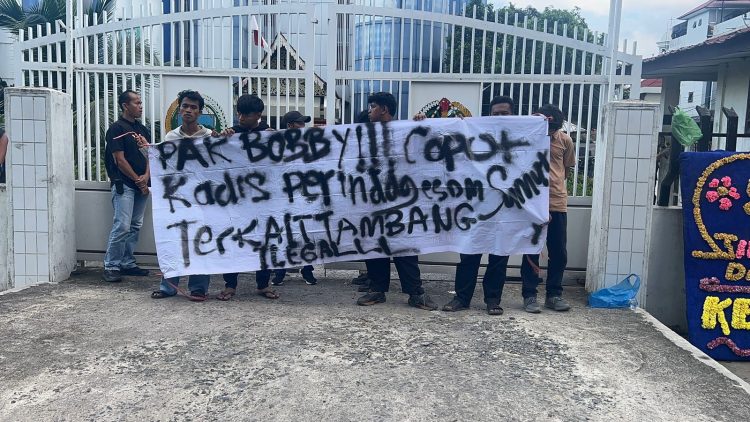 PAK BOBBY!!! COPOT
KADIS PERINDAGESDM SUMUT
TERKAIT TAMBANG
ILEGAL
KE